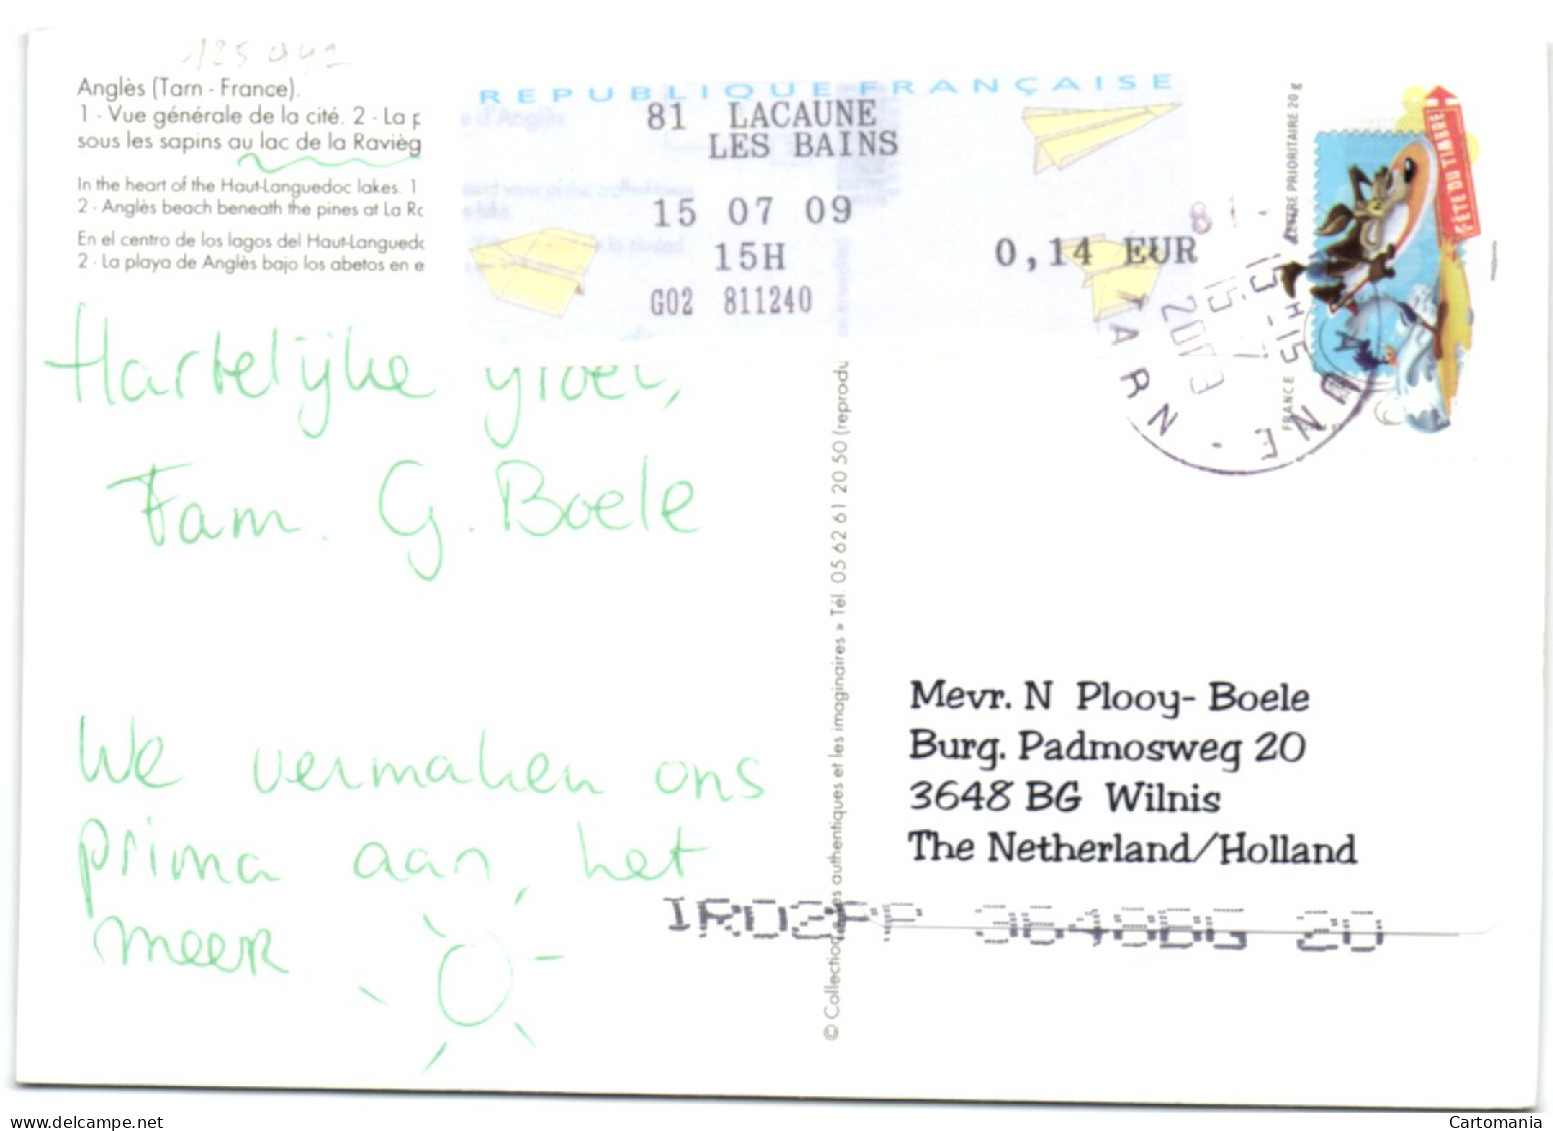 125942
Anglès (Tarn - France).
1 - Vue générale de la cité. 2 - La p
sous les sapins au lac de la Ravièg
In the heart of the Haut-Languedoc lakes. 1
2 - Anglès beach beneath the pines at La Ra
En el centro de los lagos del Haut-Languedc
2 - La playa de Anglès bajo los abetos en e
REPUBLIQUE FRANÇAISE
81 LACAUNE
LES BAINS
15 07 09
15H
0,14 EUR
G02 811240
LETTRE PRIORITAIRE 20g
FÊTE DU TIMBRE
FRANCE
81 -
15H15
15-7
2009
UNE · TARN
Hartelijke groet,
Fam. G. Boele
We vermaken ons
prima aan het
meer
© Collection authentiques et les imaginaires » Tél. 05 62 61 20 50 (reprodu
Mevr. N Plooy- Boele
Burg. Padmosweg 20
3648 BG Wilnis
The Netherland/Holland
3648BG 20
Cartomania